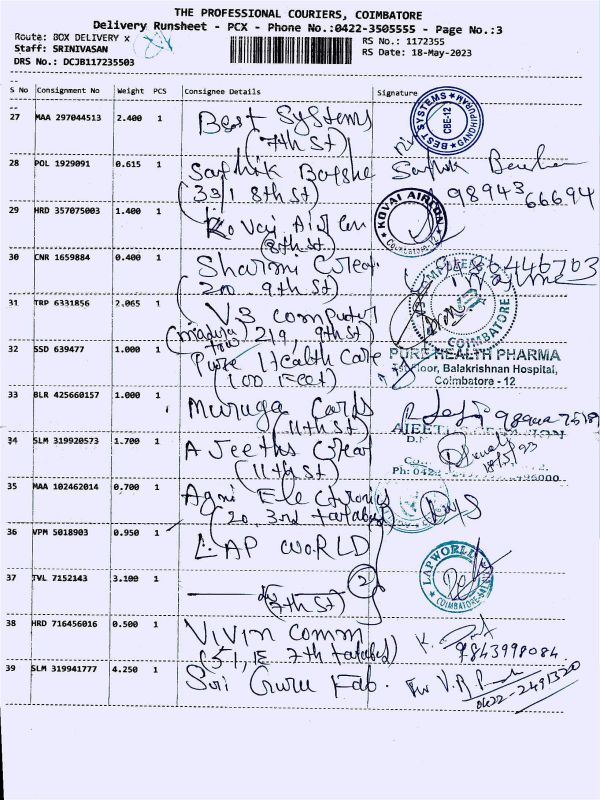 THE PROFESSIONAL COURIERS, COIMBATORE
Delivery Runsheet - PCX - Phone No.:0422-3505555 - Page No.:3
Route: BOX DELIVERY x
Staff: SRINIVASAN
DRS No.: DCJB117235503
RS No.: 1172355
RS Date: 18-May-2023
S No Consignment No Weight PCS Consignee Details Signature
27 MAA 297044513 2.400 1 Best Systems
(7th St)
BEST SYSTEMS GANDHIPURAM CBE-12
28 POL 1929091 0.615 1
(331 8th St)
98943 66694
29 HRD 357075003 1.400 1 Kovai Air Con
(8th St)
KOVAI AIRCON
Coimbatore-12
30 CNR 1659884 0.400 1 Sharmi Creat
(20 9th St)
31 TRP 6331856 2.065 1 V3 computer
219, 9th St)
COIMBATORE
32 SSD 639477 1.000 1 Pure Health Care
(100 Feet)
PURE HEALTH PHARMA
Floor, Balakrishnan Hospital,
Coimbatore - 12
33 BLR 425660157 1.000 1 Muruga Cards
(11th St)
34 SLM 319920573 1.700 1 Ajeeths Creat
(11th St)
18/5/23
Ph: 0422
35 MAA 102462014 0.700 1 Agni Electronics
(20, 3rd tatabad)
36 VPM 5018903 0.950 1 LAP WORLD
37 TVL 7152143 3.100 1
(7th St)
2
LAPWORLD
COIMBATORE
38 HRD 716456016 0.500 1 Vivin Comm
(51, E 7th tatabad)
9843998084
39 SLM 319941777 4.250 1 Sri Guru Fab.
For V.R
0422-2491320